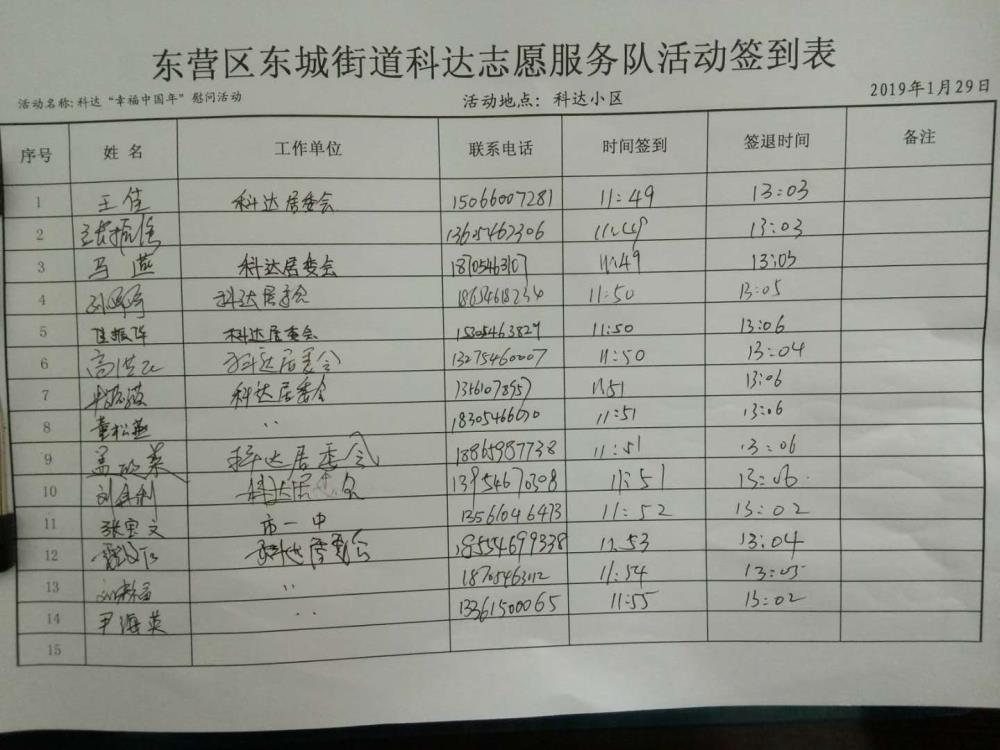 东营区东城街道科达志愿服务队活动签到表
活动名称: 科达“幸福中国年”慰问活动 活动地点: 科达小区 2019年1月29日
序号 姓名 工作单位 联系电话 时间签到 签退时间 备注
1 王佳 科达居委会 15066007281 11:49 13:03
2 13605462306 11:49 13:03
3 马燕 科达居委会 18705463107 11:49 13:03
4 科达居委会 18654618234 11:50 13:05
5 科达居委会 15305463829 11:50 13:06
6 科达居委会 13275460007 11:50 13:04
7 科达居委会 13561078957 11:51 13:06
8 董松燕 〃 11:51 13:06
9 科达居委会 18865987738 11:51 13:06
10 科达居委会 13954670308 11:51 13:06
11 张宝文 市一中 13561046473 11:52 13:02
12 科达居委会 18554699338 11:53 13:04
13 〃 18705463112 11:54 13:05
14 尹海英 〃 13361500065 11:55 13:02
15